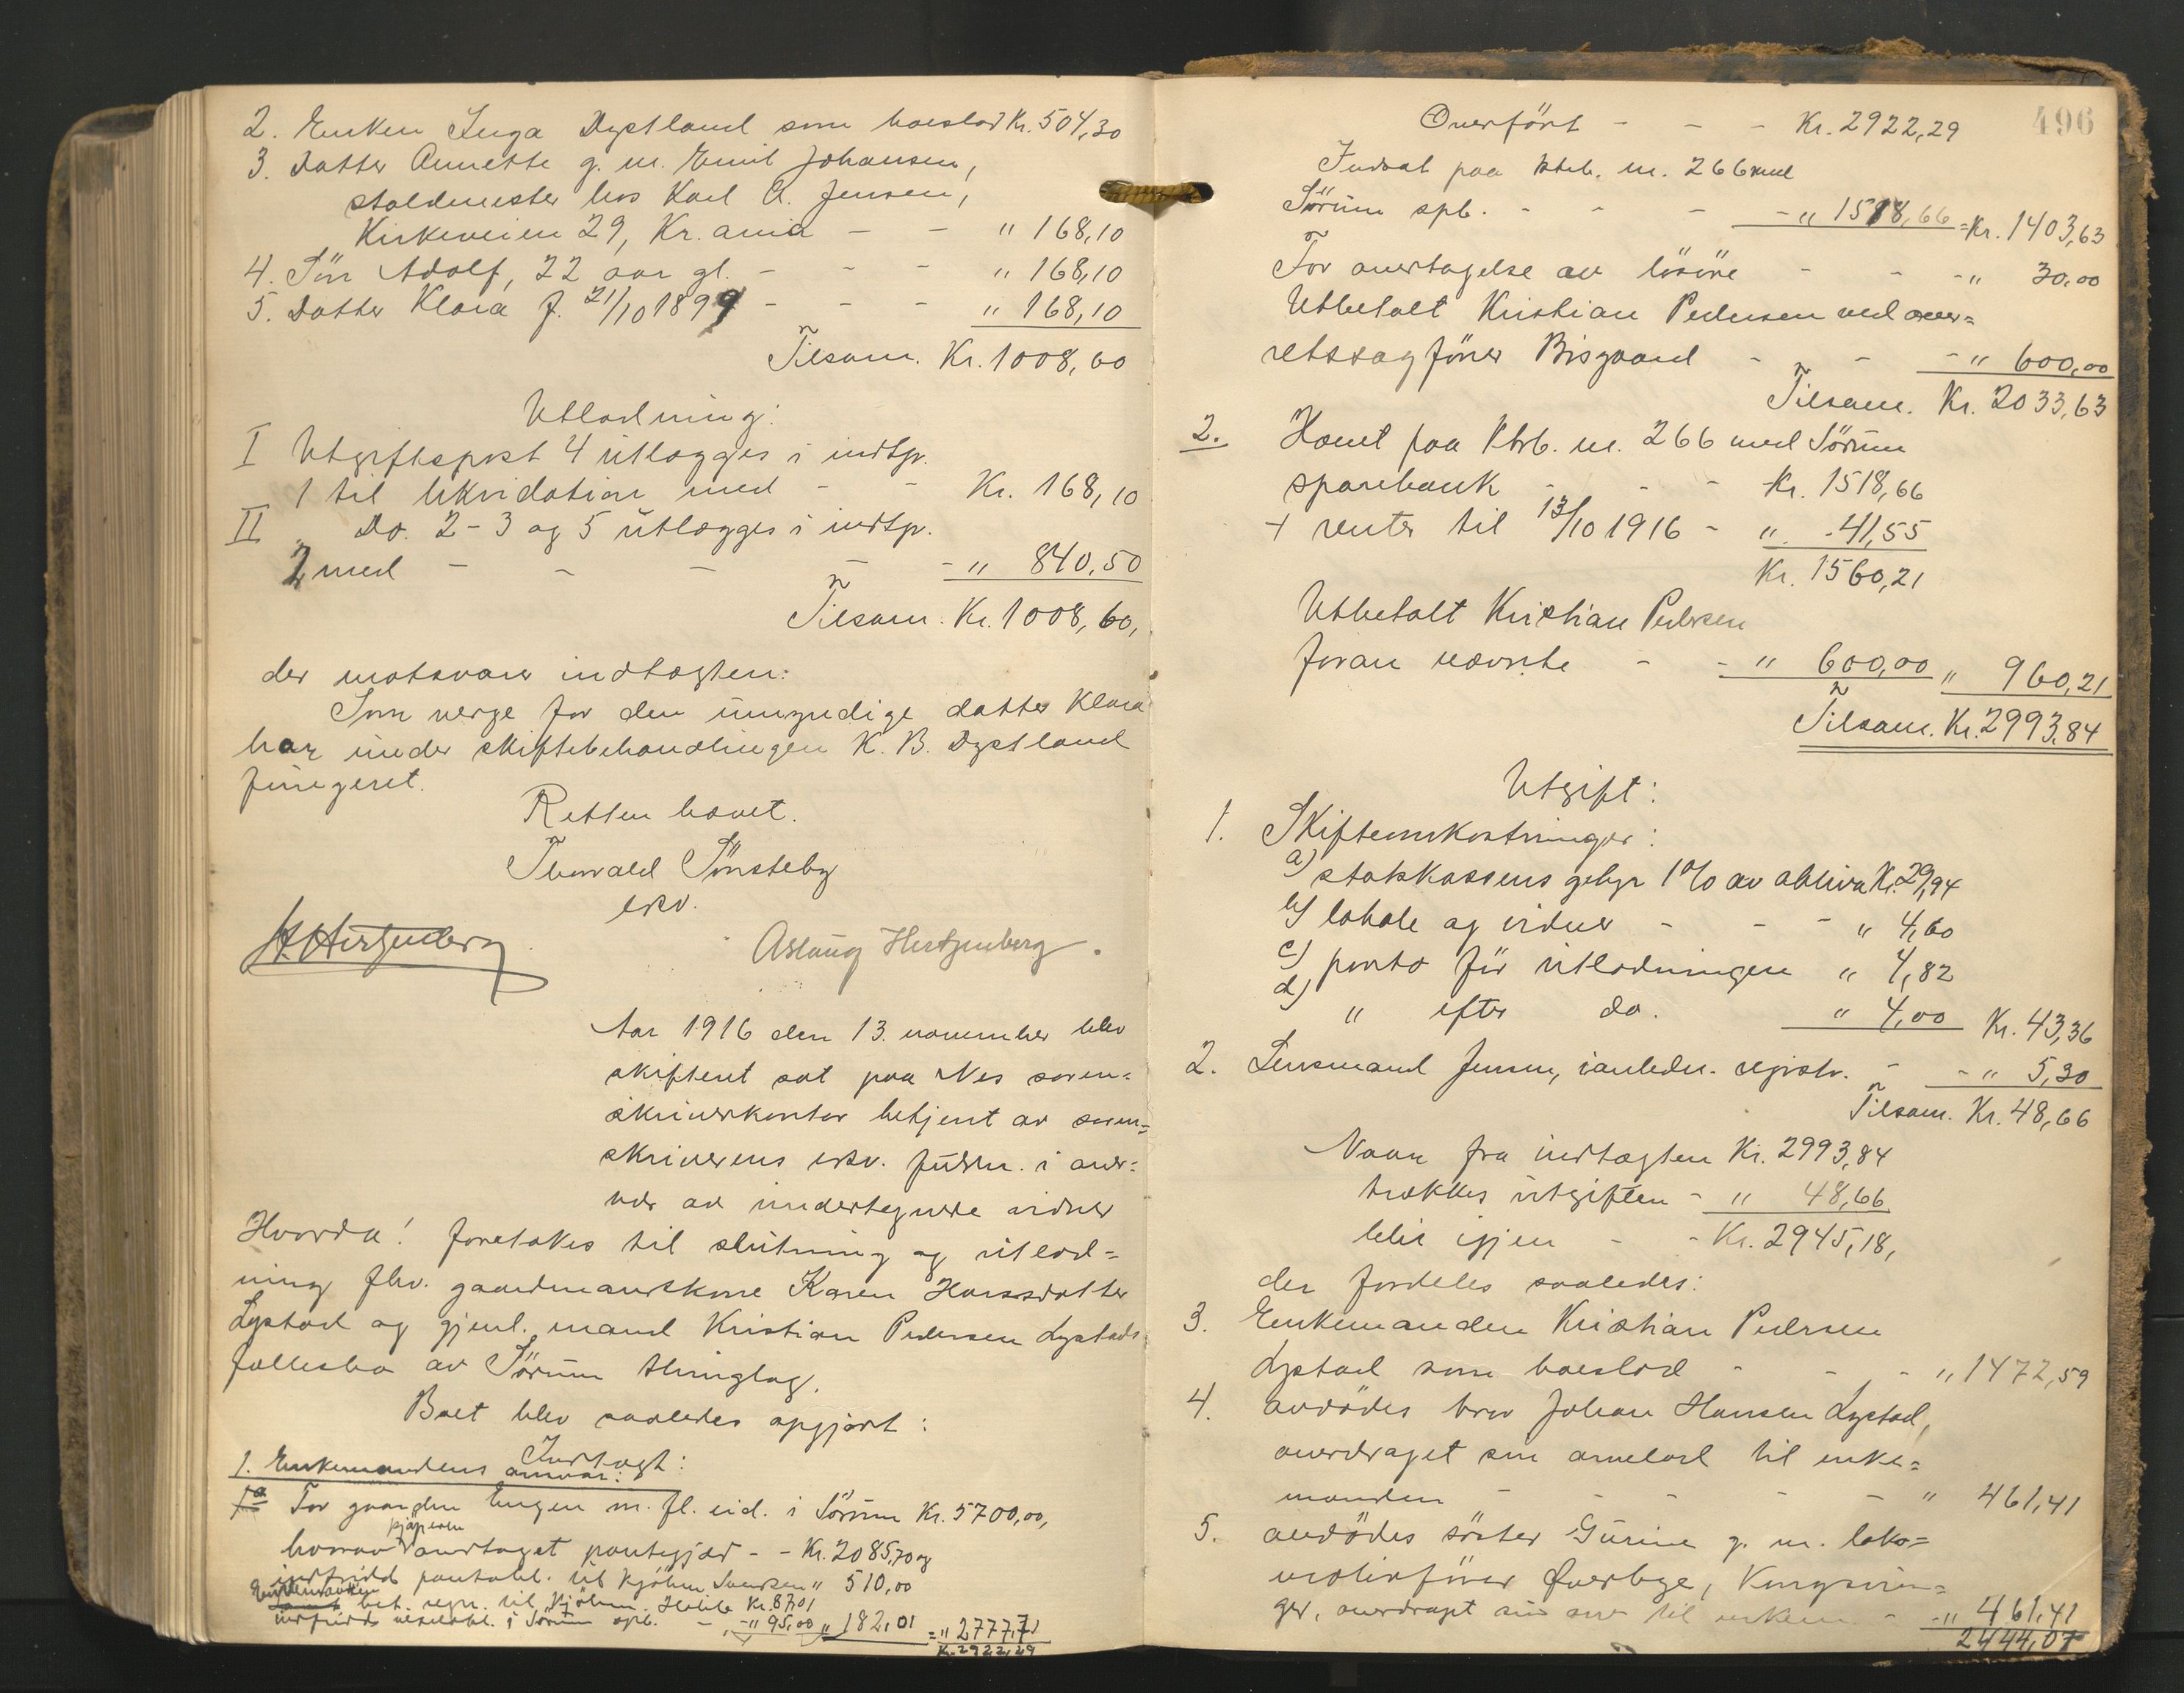 2. Enken Inga Dystland som boeslod Kr. 504,30
3. Datter Annette g. m. Emil Johansen,
staldmester hos Karl A. Jensen,
Kirkeveien 29, Kr.ania - - " 168,10
4. Søn Adolf, 22 aar gl. - - - " 168,10
5. Datter Klara f. 21/10 1899 - - - " 168,10
Tilsam. Kr. 1008,60
Utlodning:
I Utgiftspost 4 utlægges i indtp.
1 til likvidation med - - Kr. 168,10
II " Do. 2-3 og 5 utlægges i indtp.
2 med - - - - - " 840,50
Tilsam. Kr. 1008,60,
der motsvarer indtægten.
Som verge for den umyndige datter Klara
har under skiftebehandlingen K. B. Dystland
fungeret.
Retten hævet.
Thorvald Tönsteby
eksv.
H. Hertzenberg
Aslaug Hertzenberg.
Aar 1916 den 13. november blev
skifteret sat paa Nes soren=
skriverkontor betjent av soren=
skriverens eksv. fuldm. i over=
vær av undertegnede vidner
Hvorda! foretokes til slutning og utlod=
ning fhv. gaardmandskone Karen Hansdatter
Lystad og gjenl. mand Kristian Pedersen Lystads
fællesbo av Sörum thinglag.
Boet blev saaledes opgjort:
Indtægt:
1. Enkemandens ansvar:
a For gaarden Engen m. fl. eid. i Sörum Kr. 5700,00,
kjøperen
horav overtaget pantegjæld - - Kr. 2085,70 og
indfridd pantobl. til Kjölum Svendsen " 510,00
Enkemanden
bet. regn. til Kjölum Kr. 87,01
indfridd i Sörum spb. - " 95,00 " 182,01 = " 2777,71
Kr. 2922,29
496
Overført - - - Kr. 2922,29
Indsat paa ktrb. nr. 266 med
Sörum spb. - - - - " 1518,66 = Kr. 1403,63
For overtagelse av lösöre - - - " 30,00
Utbetalt Kristian Pedersen ved over=
retssagförer Bisgaard - - - " 600,00
Tilsam. Kr. 2033,63
2. Hævet paa ktrb. nr. 266 med Sörum
sparebank - - - Kr. 1518,66
+ renter til 13/10 1916 - " 41,55
Kr. 1560,21
Utbetalt Kristian Pedersen
foran nævnte - - " 600,00 " 960,21
Tilsam. Kr. 2993,84
Utgift:
1. Skifteomkostninger:
a) statskassens gebyr 1% av aktiva Kr. 29,94
b) lokale og vidner - - - " 4,60
c) porto før utlodningen " 4,82
d) " efter do. " 4,00 Kr. 43,36
2. Lensmand Jensen, i anledn. registr. - - " 5,30
Tilsam. Kr. 48,66
Naar fra indtægten Kr. 2993,84
trækkes utgiften - " 48,66
blir igjen - - Kr. 2945,18,
der fordeles saaledes:
3. Enkemanden Kristian Pedersen
Lystad som boeslod - - - " 1472,59
4. avdödes bror Johan Hansen Lystad,
overdraget sin arvelod til enke=
manden - - - - - " 461,41
5. avdödes söster Gurine g. m. loko=
motivförer Överbye, Kongsvin=
ger, overdraget sin arv til enkem. - - " 461,41
2444,07